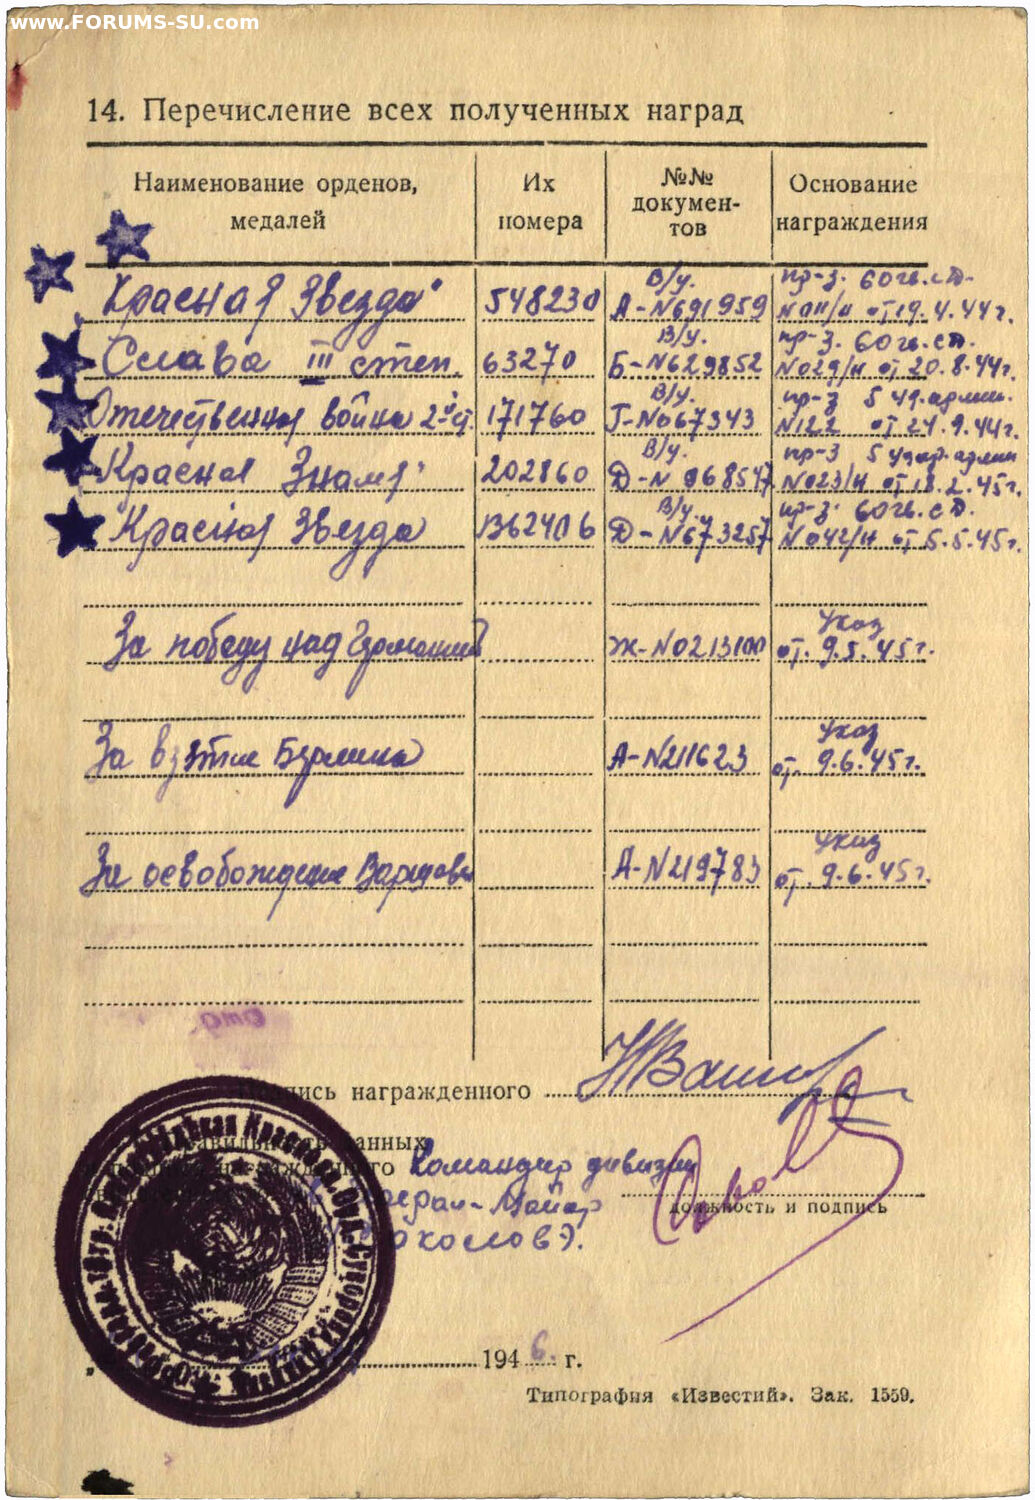 www.FORUMS-SU.com
14. Перечисление всех полученных наград
Наименование орденов, медалей
Их номера
№№ докумен-тов
Основание награждения
В/у. пр-з. 60 гв. сд.
Красная Звезда 548230 А-№691959 №011/н от 19.4.44г.
В/у. пр-з. 60 гв. сд.
Слава III степ. 63270 Б-№629852 №029/н от 20.8.44г.
В/у. пр-з 5 уд. армии.
Отечественная война 2й ст. 171760 Г-№067343 №122 от 24.9.44г.
В/у. пр-з 5 удар. армии
Красная Знамя 202860 Д-№ 968547 №023/н от 18.2.45г.
В/у. пр-з. 60 гв. сд.
Красная Звезда 1362406 Д-№673257 №042/н от 5.5.45г.
Указ
За победу над Германией Ж-№0213100 от. 9.5.45г.
Указ
За взятие Берлина А-№211623 от. 9.6.45г.
Указ
За освобождение Варшавы А-№219783 от. 9.6.45г.
отд.
Подпись награжденного
данных
Командир дивизии
Генерал-Майор
должность и подпись
Соколов Э.
194 6. г.
Типография «Известий». Зак. 1559.